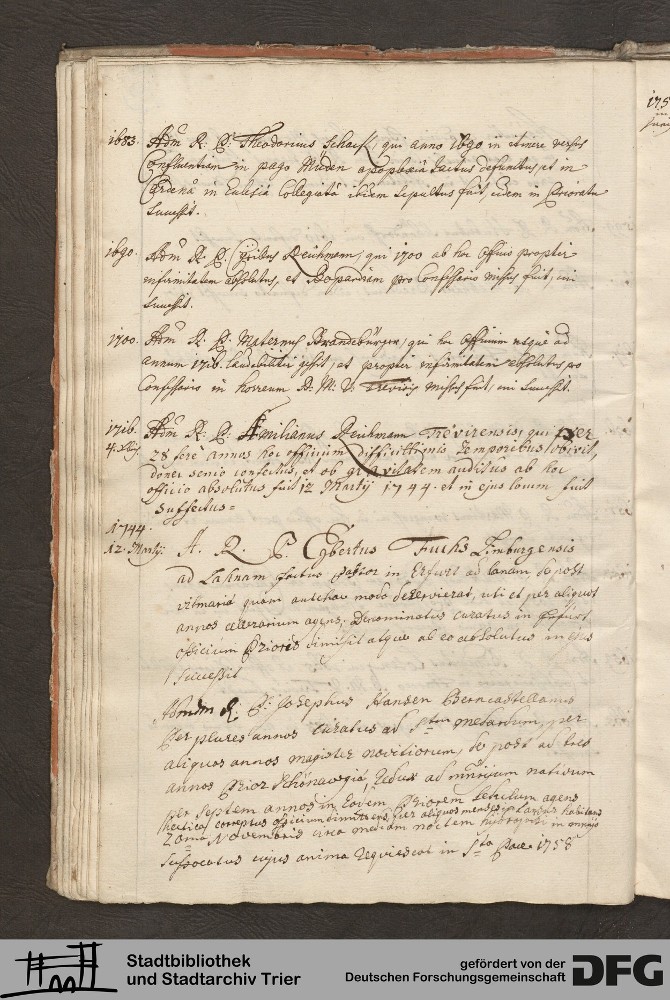 1683. Adm R. P. Theodoricus Schack, qui anno 1690 in itinere versus
Confluentiam in pago Müden apoplexia tactus defunctus, et in
Cardena in Ecclesia Collegiata ibidem sepultus fuit, eidem in Prioratu
successit.
1690. Adm R. P. Reichmann, qui 1700 ab hoc officio propter
infirmitatem absolutus, et Bopardiam pro Confessario missus fuit, cui
successit.
1700. Adm R. P. Maternus Brandebürger, qui hoc officium usque ad
annum 1716. laudabiliter gessit, et propter infirmitatem absolutus pro
Confessario in horreum B. M. V. Treviris missus fuit, cui successit.
1716. Adm R. P. Æmilianus Reichmann Trevirensis, qui per
28 fere annos hoc officium difficillimis temporibus obivit,
donec senio confectus, et ob gravitatem auditus ab hoc
officio absolutus fuit 12 Martij 1744. et in ejus locum fuit
suffectus=
1744.
12. Martij. A. R. P. Egbertus Fuchs Limburgensis
ad Lahnam factus Pastor in Erfurt ad Lanam de post
vilmariæ quam antehac modo deservierat, uti et per aliquot
annos cellerarium agens. Denominatus curatus in Erfurt
officium Prioris dimisit atque ab eo absolutus in ejus
successit
Admdm R. P. Josephus Hansen Berncastellanus
per plures annos curatus ad Stum medardum, per
aliquos annos magister novitiorum, de post ad tres
annos Prior Schönaugiæ, redux ad mnrijum nativum
per septem annos in eodem Priorem tertium agens
hectica correptus officium dimittens, per aliquos menses habitans
Novembris circa mediam noctem hidropisi in
suffocatus cujus anima requiescat in Sta Pace 1758
Stadtbibliothek
und Stadtarchiv Trier
gefördert von der
Deutschen Forschungsgemeinschaft
DFG